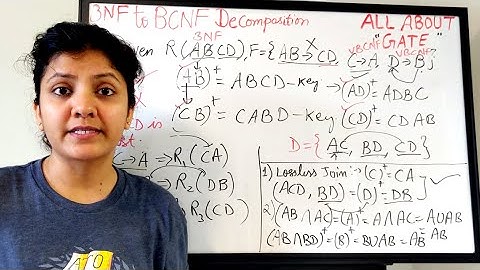 3NF to BCNF Decomposition
ALL ABOUT
"GATE"
3NF
R(ABCD), F={AB→CD, C→A D→B}
X
VBCNF VBCNF?
(AB)+ = ABCD-Key
(AD)+ = ADBC
(CB)+ = CABD-Key
(CD)+ = CDAB
D is
D={AC, BD, CD}
C→A ⇒ R1(CA)
R2(DB)
R3(CD)
1) Lossless Join :→ (C)+ = CA
(ACD, BD) = (D)+ = DB
2) (AB∩AC) = (A)+ = A∩AC = AUAB
(AB∩BD)+ = (B)+ = BUAB = AB = AB
ATO